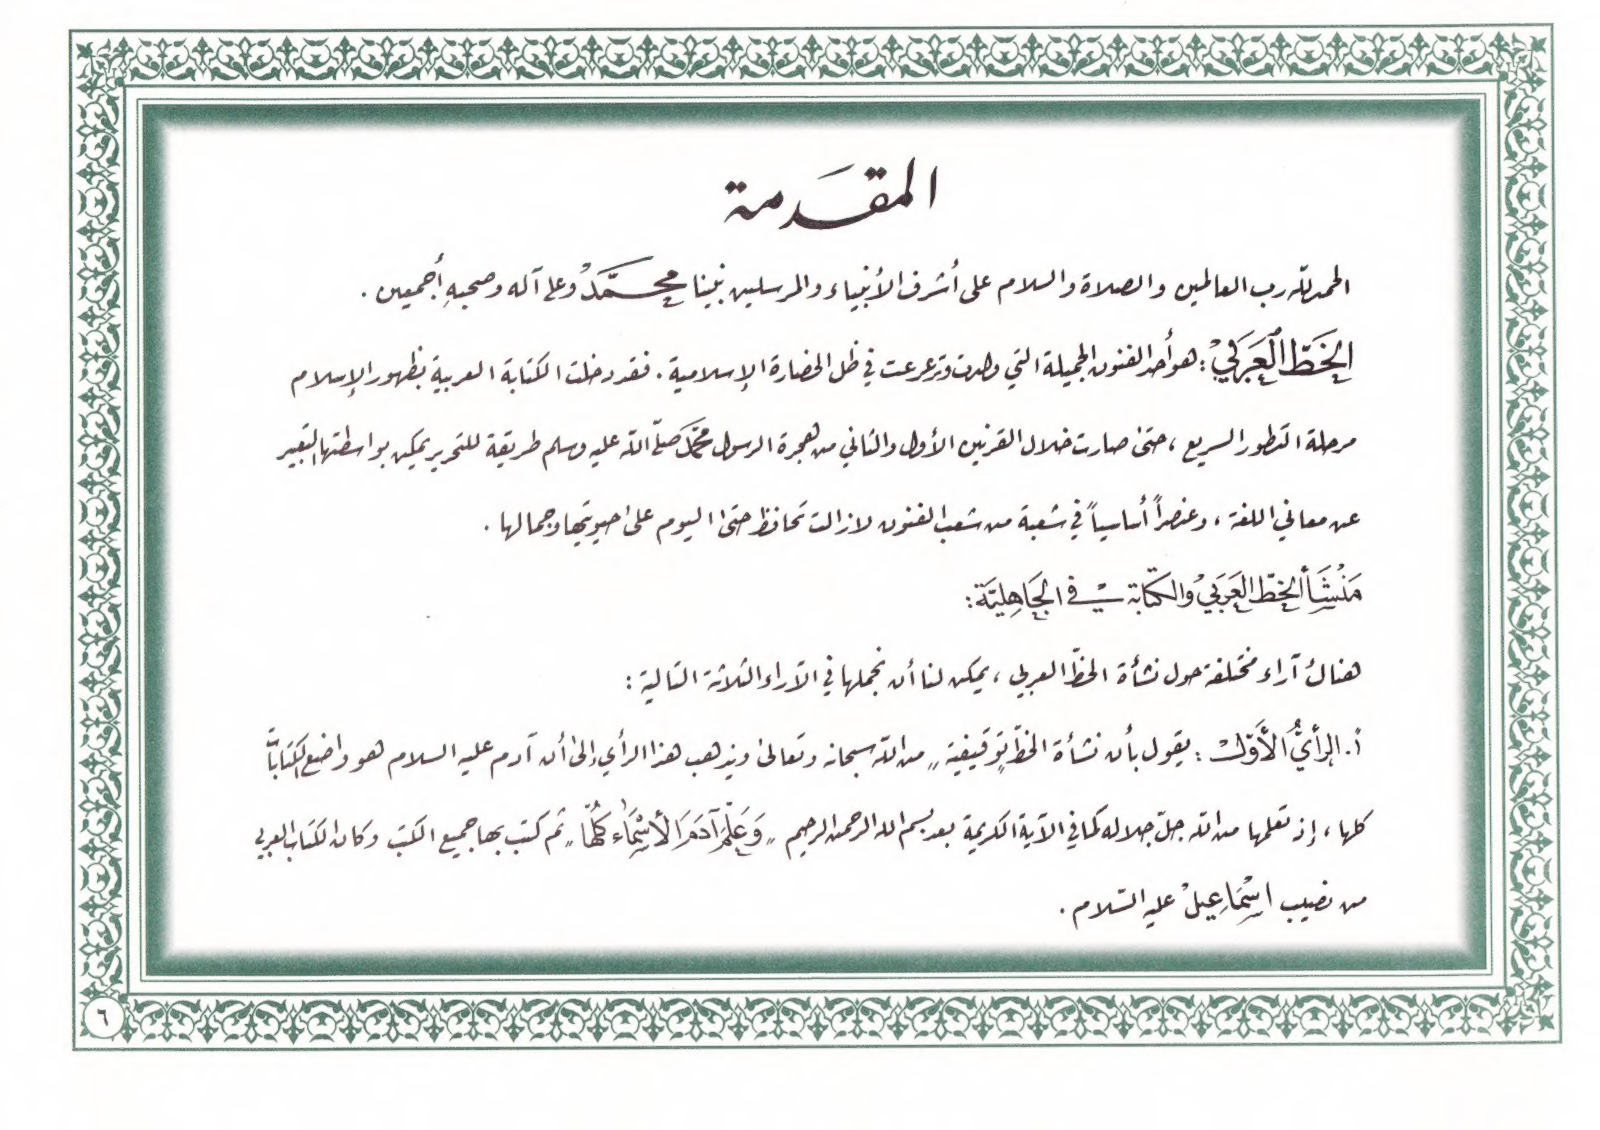 المقدمة
الحمد لله رب العالمين والصلاة والسلام على أشرف الأنبياء والمرسلين نبينا محمَّد وعلى آله وصحبهِ أجمعين .
الخَطّ العَرَبيْ : هو أحد الفنون الجميلة التي ولدت وترعرعت في ظل الحضارة الإسلامية . فقد دخلت الكتابة العربية بظهور الإسلام
مرحلة التطور السريع ، حتى صارت خلال القرنين الأول والثاني من هجرة الرسول محمَّد صلّى الله عليه وسلم طريقة للتحرير يمكن بواسطتها التعبير
عن معاني اللغة ، وعنصراً أساسياً في شعبة من شعب الفنون لازالت تحافظ حتى اليوم على حيويتها وجمالها .
مَنْشَأ الخطّ العَرَبَيْ والكتّابة في الجَاهِليَّة :
هناك آراء مختلفة حول نشأة الخطّ العربي ، يمكن لنا أن نجملها في الآراء الثلاثة التالية :
أ. الرأيُّ الأَوَّلْ : يقول بأن نشأة الخطّ توقيفية „ من الله سبحانه وتعالى ويذهب هذا الرأي إلى أن آدم عليه السلام هو واضع الكتابات
كلها ، إذ تعلمها من الله جلّ جلاله كما في الآية الكريمة بعد بسم الله الرحمن الرحيم „ وَعَلَّمَ آدَمَ الأَسْمَاء كُلَّهَا „ ثم كتب بها جميع الكتب وكان الكتاب العربي
من نصيب اسْمَاعِيلْ عليه السّلام .
٦